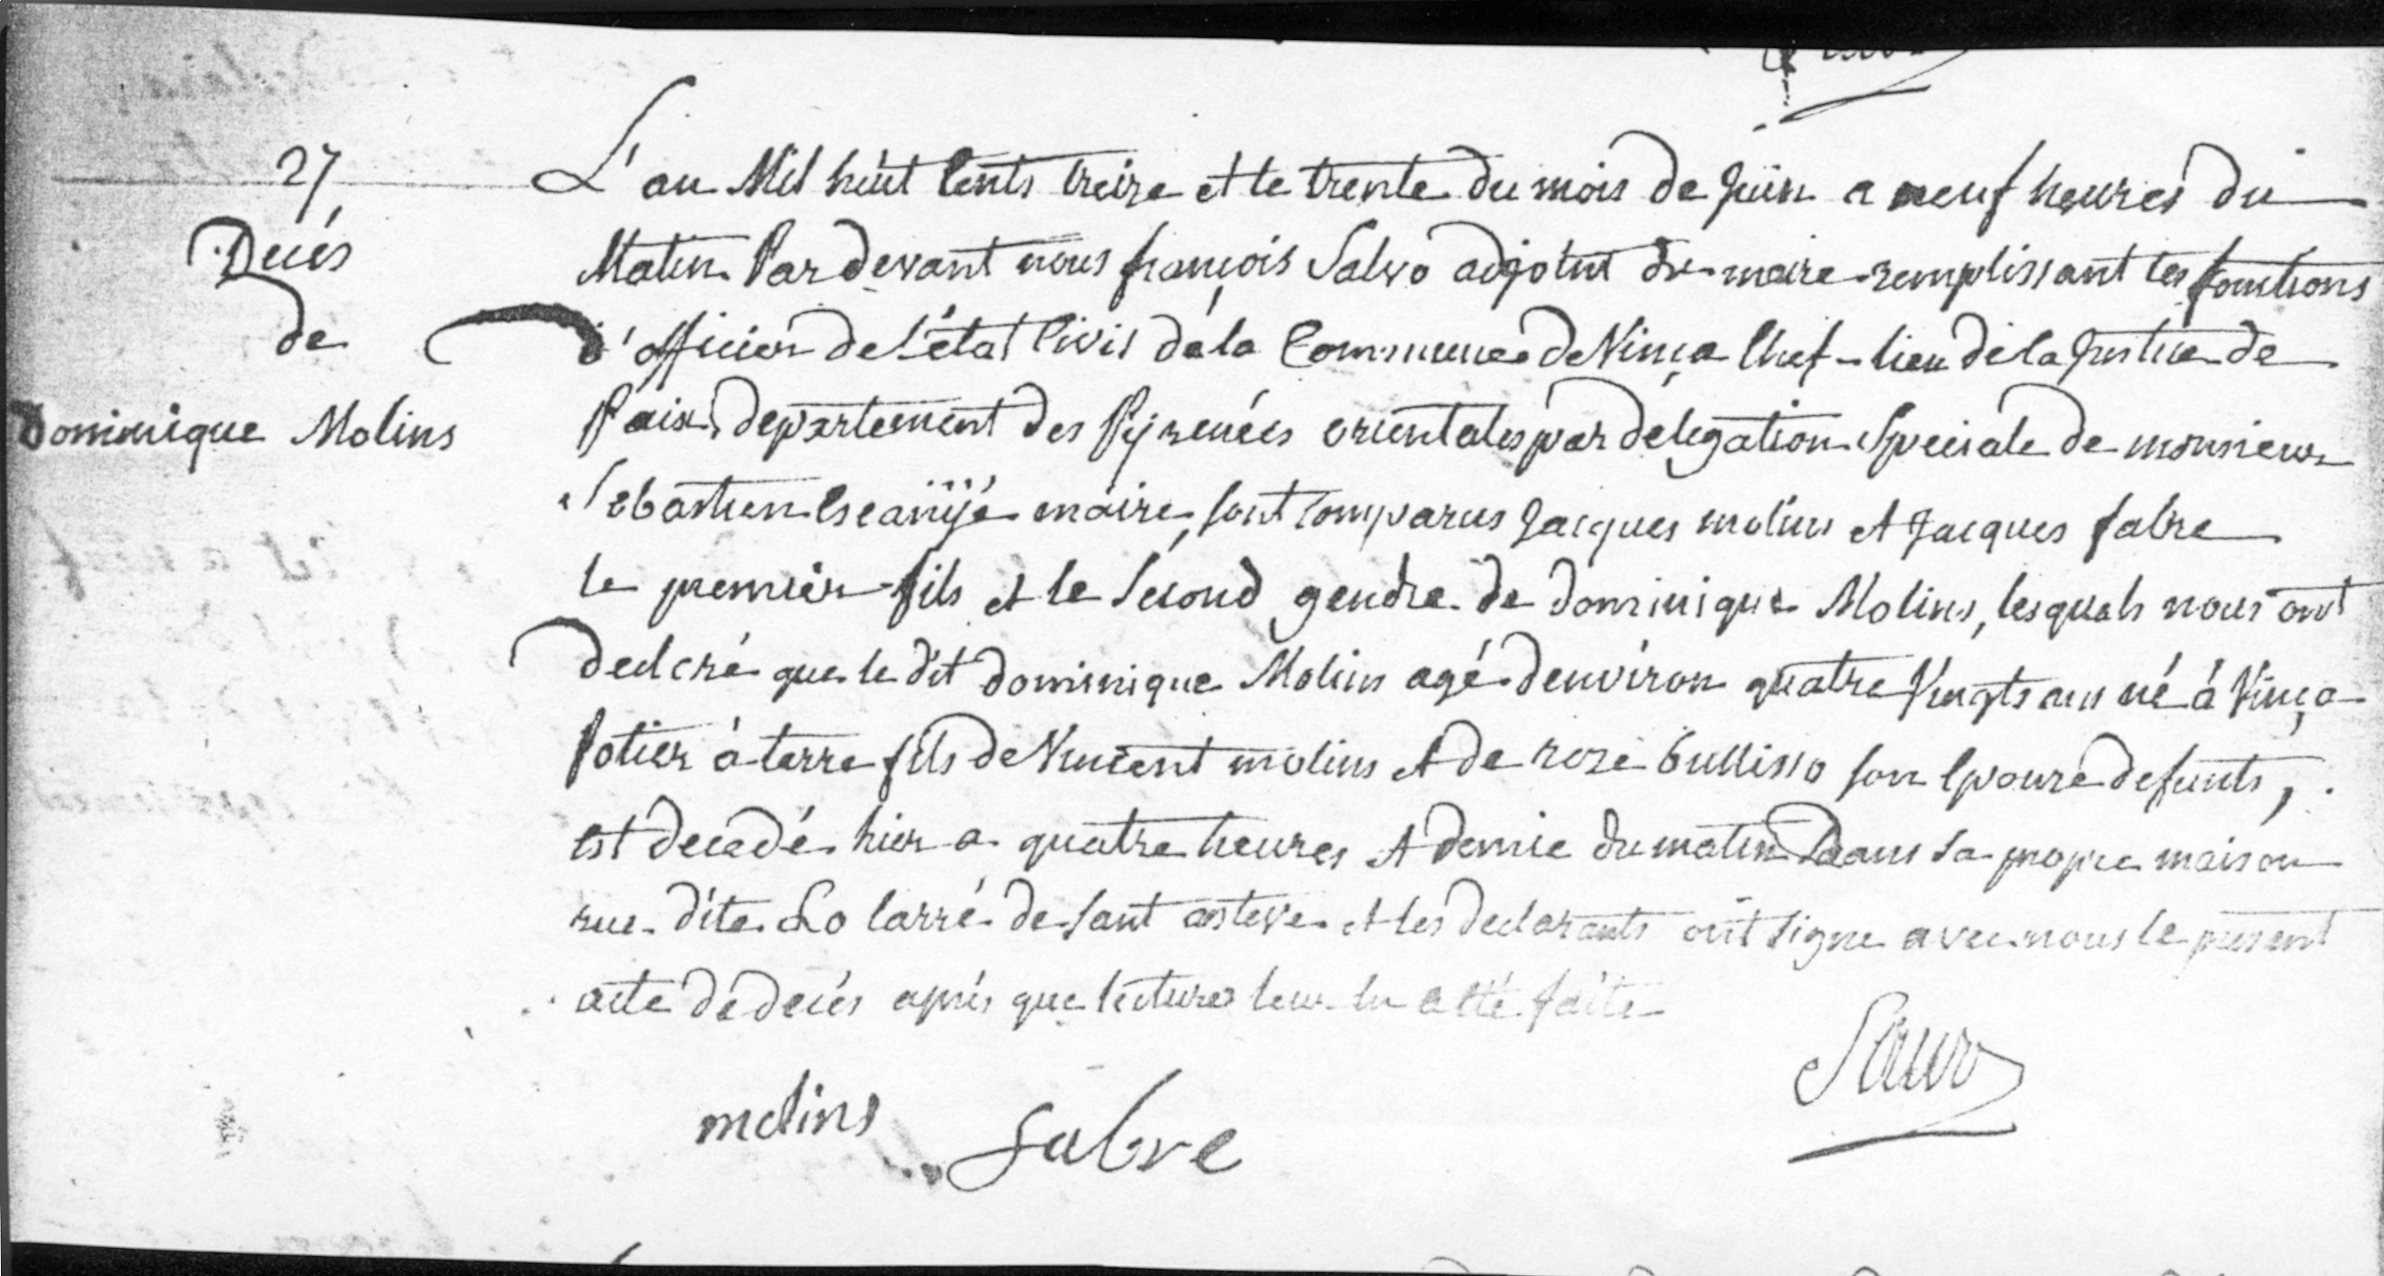 27
Decés
de
dominique Molins
L'an Mil huit Cents treize et le trente du mois de Juin a neuf heures du
Matin Pardevant nous françois Salvo adjoint du maire remplissant les fonctions
d'officier de l'état Civil de la Commune de Vinça Chef-lieu de la Justice de
Paix, departement des Pÿrenées orientales par delegation Speciale de monsieur
Sebastien maire, sont Comparus Jacques molins et Jacques fabre
le premier fils et le Second gendre de dominique Molins, lesquels nous ont
declaré que le dit dominique Molins agé denviron quatre Vingts ans né à Vinça
Potier à terre fils de Vincent molins et de roze son Epouze defunts,
est decedé hier a quatre heures et demie du matin dans sa propre maison
rue dite Lo Carré de sant esteve et les declarants ont signe avec nous le present
acte de decés aprés que lecture leur en a eté faite
molins fabre Salvo